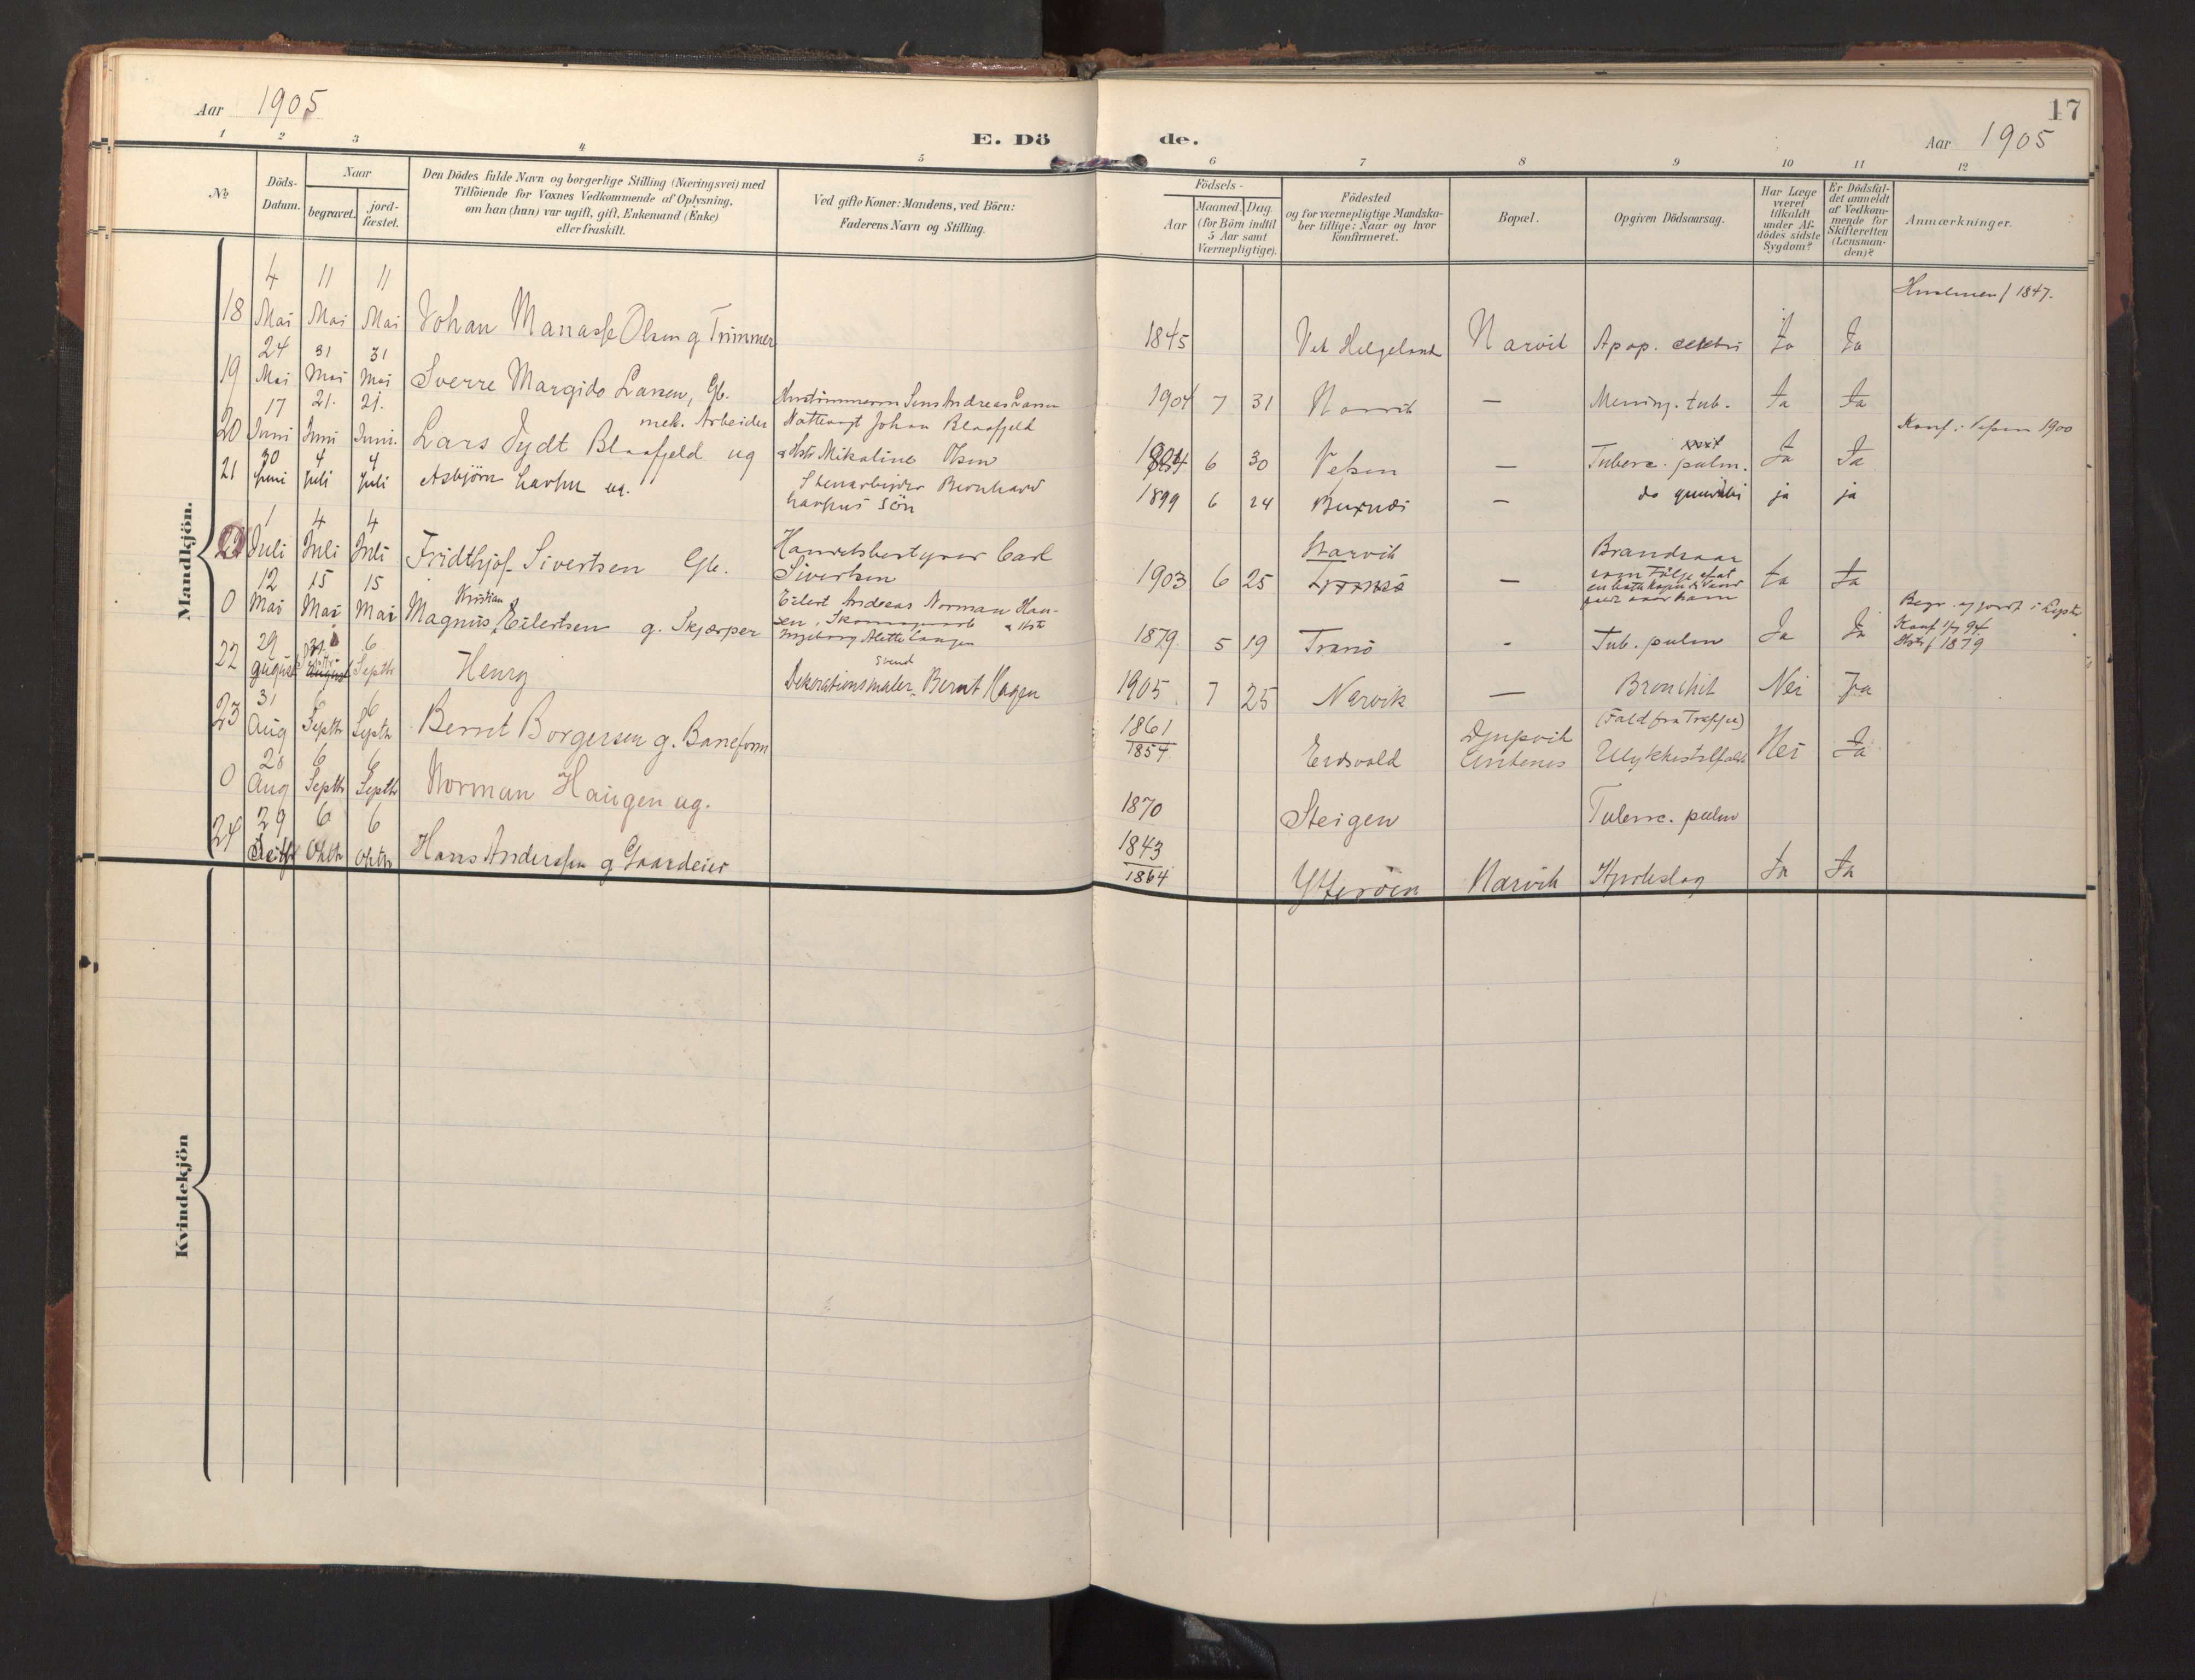 Aar 1905
17
E. Dö de.
Aar 1905
1 2 3 4 5 6 7 8 9 10 11 12
No
Döds-
Datum.
Naar
begravet.
jord-
fæstet.
Den Dödes fulde Navn og borgerlige Stilling (Næringsvei) med
Tilföiende for Voxnes Vedkommende af Oplysning,
om han (hun) var ugift, gift, Enkemand (Enke)
eller fraskilt.
Ved gifte Koner: Mandens, ved Börn:
Faderens Navn og Stilling.
Födsels-
Aar
Maaned. Dag.
(for Börn indtil
5 Aar samt
Værnepligtige).
Födested
og for værnepligtige Mandska-
ber tillige: Naar og hvor
konfirmeret.
Bopæl.
Opgiven Dödsaarsag.
Har Læge
været
tilkaldt
under Af-
dödes sidste
Sygdom?
Er Dödsfal-
det anmeldt
af Vedkom-
mende for
Skifteretten
(Lensman-
den)?
Anmærkninger.
Mandkjön.
18 4 Mai 11 Mai 11 Mai Johan Manasse Olsen g Trimmer 1845 Helgeland Narvik Apop. Ja Ja 1847.
19 24 Mai 31 Mai 31 Mai Sverre Margido Larsen, Gb. Andreas Larsen 1904 7 31 Narvik — Mening. tub. Ja Ja
20 17 Juni 21. Juni 21. Juni. Lars Dydt Blaafjeld ug mek. Arbeider Johan Blaafjeld
Mikaline Olsen 6 30 Vefsen — Tuberc. pulm. Ja Ja Konf. i Vefsen 1900
21 30 Juni 4 Juli 4 Juli Asbjörn ug. Stenarbeider Bernhard
Sön 1899 6 24 — do ja ja
1 Juli 4 Juli 4 Juli Fridthjof Sivertsen Gb. Handelsbestyrer Carl
Sivertsen 1903 6 25 Narvik Tromsö — Brandsaar
som Fölge af at
Ja Ja
0 12 Mai 15 Mai 15 Mai Magnus Kristian Eilertsen g. Skjærper Eilert Andreas Norman Han-
sen,
Ingeborg Alette 1879 5 19 Tranö - Tub. pulm Ja Ja Konf 94
1879
22 29 August August 6 Septbr Henry Dekorationsmaler svend Bernt Hagen 1905 7 25 Narvik — Bronchit Nei Ja
23 31 Aug 6 Septbr 6 Septbr Bernt Borgersen g. Baneform 1861
1854 Eidsvold Djupvik (Fald fra Trappe)
Ulykkestilfælde Nei Ja
0 28 Aug 6 Septbr 6 Septbr Norman Haugen ug. 1870 Steigen Tuberc. pulm
24 29 Septbr 6 Oktbr 6 Oktbr Hans Anderssen g Gaardeier 1843
1864 Ytteröen Narvik Hjerteslag Ja Ja
Kvindekjön